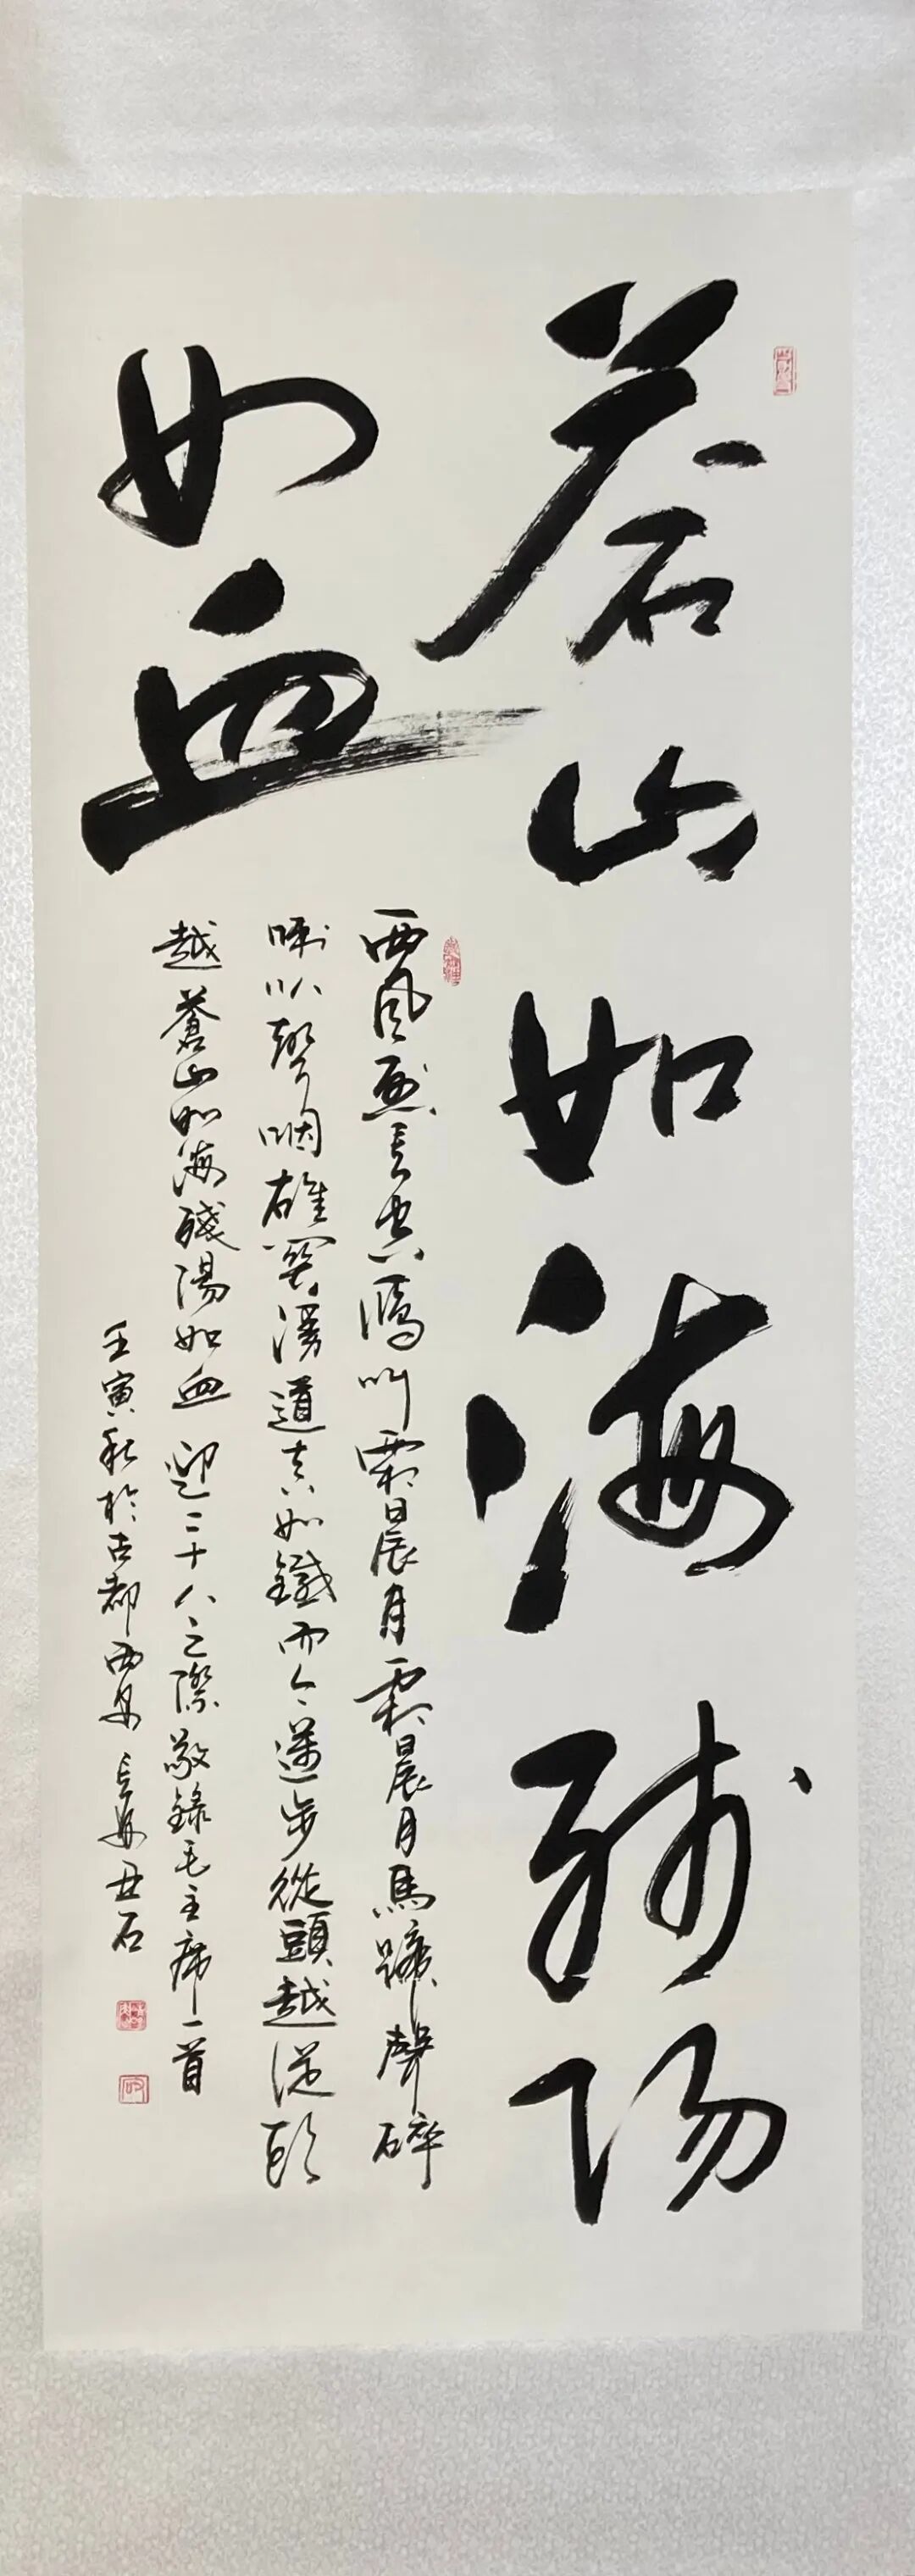 蒼山如海殘陽
如血
西風烈長空鴈叫霜晨月霜晨月馬蹄聲碎
喇叭聲咽雄關漫道真如鐵而今邁步從頭越從頭
越蒼山如海殘陽如血 迎二十大之際敬錄毛主席一首
壬寅秋於古都西安 長安丑石